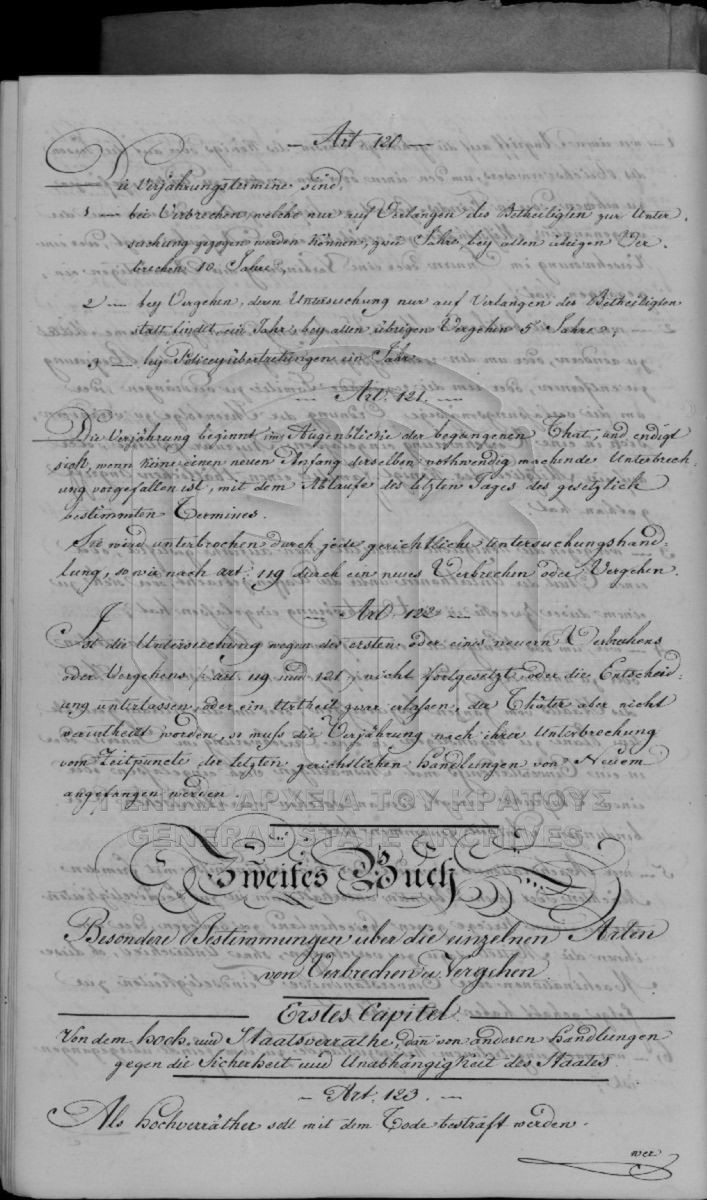 — Art 120 —
Die Verjährungstermine sind,
1 — bei Verbrechen, welche nur auf Verlangen des Betheiligten zur Unter-
suchung gezogen werden können, zwei Jahre, bey allen übrigen Ver-
brechen 10 Jahre,
2 — bey Vergehen, deren Untersuchung nur auf Verlangen des Betheiligten
statt findet, ein Jahr, bey allen übrigen Vergehen 5 Jahre,
3 — bey Policeyübertretungen ein Jahr.
— Art. 121. —
Die Verjährung beginnt im Augenblicke der begangenen That, und endigt
sich, wenn keine einen neuen Anfang derselben nothwendig machende Unterbrech-
ung vorgefallen ist, mit dem Ablaufe des letzten Tages des gesetzlich
bestimmten Termines.
Sie wird unterbrochen durch jede gerichtliche Untersuchungshand-
lung, so wie nach Art. 119 durch ein neues Verbrechen oder Vergehen.
— Art. 122 —
Ist die Untersuchung wegen des ersten oder eines neuern Verbrechens
oder Vergehens /: Art. 119 und 121 :/ nicht fortgesetzt, oder die Entscheid-
ung unterlassen, oder ein Urtheil zwar erlassen, der Thäter aber nicht
verurtheilt worden, so muss die Verjährung nach ihrer Unterbrechung
vom Zeitpuncte der letzten gerichtlichen Handlungen von Neuem
angefangen werden.
ΓΕΝΙΚΑ ΑΡΧΕΙΑ ΤΟΥ ΚΡΑΤΟΥΣ
GENERAL STATE ARCHIVES
Zweites Buch
Besondere Bestimmungen über die einzelnen Arten
von Verbrechen u Vergehen.
Erstes Capitel.
Von dem Hoch- und Staatsverrathe, dan von anderen Handlungen
gegen die Sicherheit und Unabhängigkeit des Staates.
— Art. 123. —
Als Hochverräther soll mit dem Tode bestraft werden.
wer